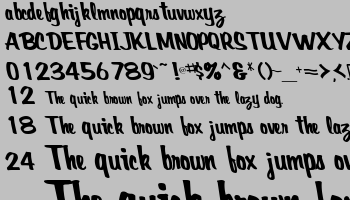 abcdefghijklmnopqrstuvwxyz
ABCDEFGHIJKLMNOPQRSTUVWXYZ
0123456789
12 The quick brown fox jumps over the lazy dog.
18 The quick brown fox jumps over the laz
24 The quick brown fox jumps o
The quick brown fox